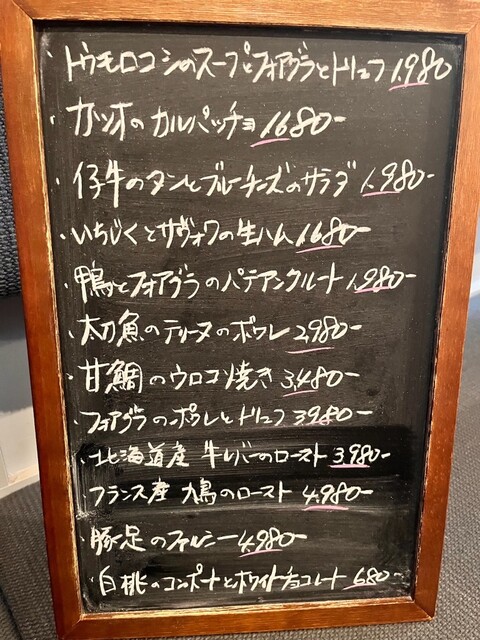 ・トウモロコシのスープとフォアグラとトリュフ 1,980
・カツオのカルパッチョ 1,680-
・仔牛のタンとブルーチーズのサラダ 1,980-
・いちじくとサヴォワの生ハム 1,680-
・鴨とフォアグラのパテアンクルート 1,980-
・太刀魚のテリーヌのポワレ 2,980-
・甘鯛のウロコ焼き 3,480-
・フォアグラのポワレとトリュフ 3,980-
・北海道産 牛レバーのロースト 3,980-
・フランス産 鳩のロースト 4,980-
・豚足のファルシー 4,980-
・白桃のコンポートとホワイトチョコレート 680-